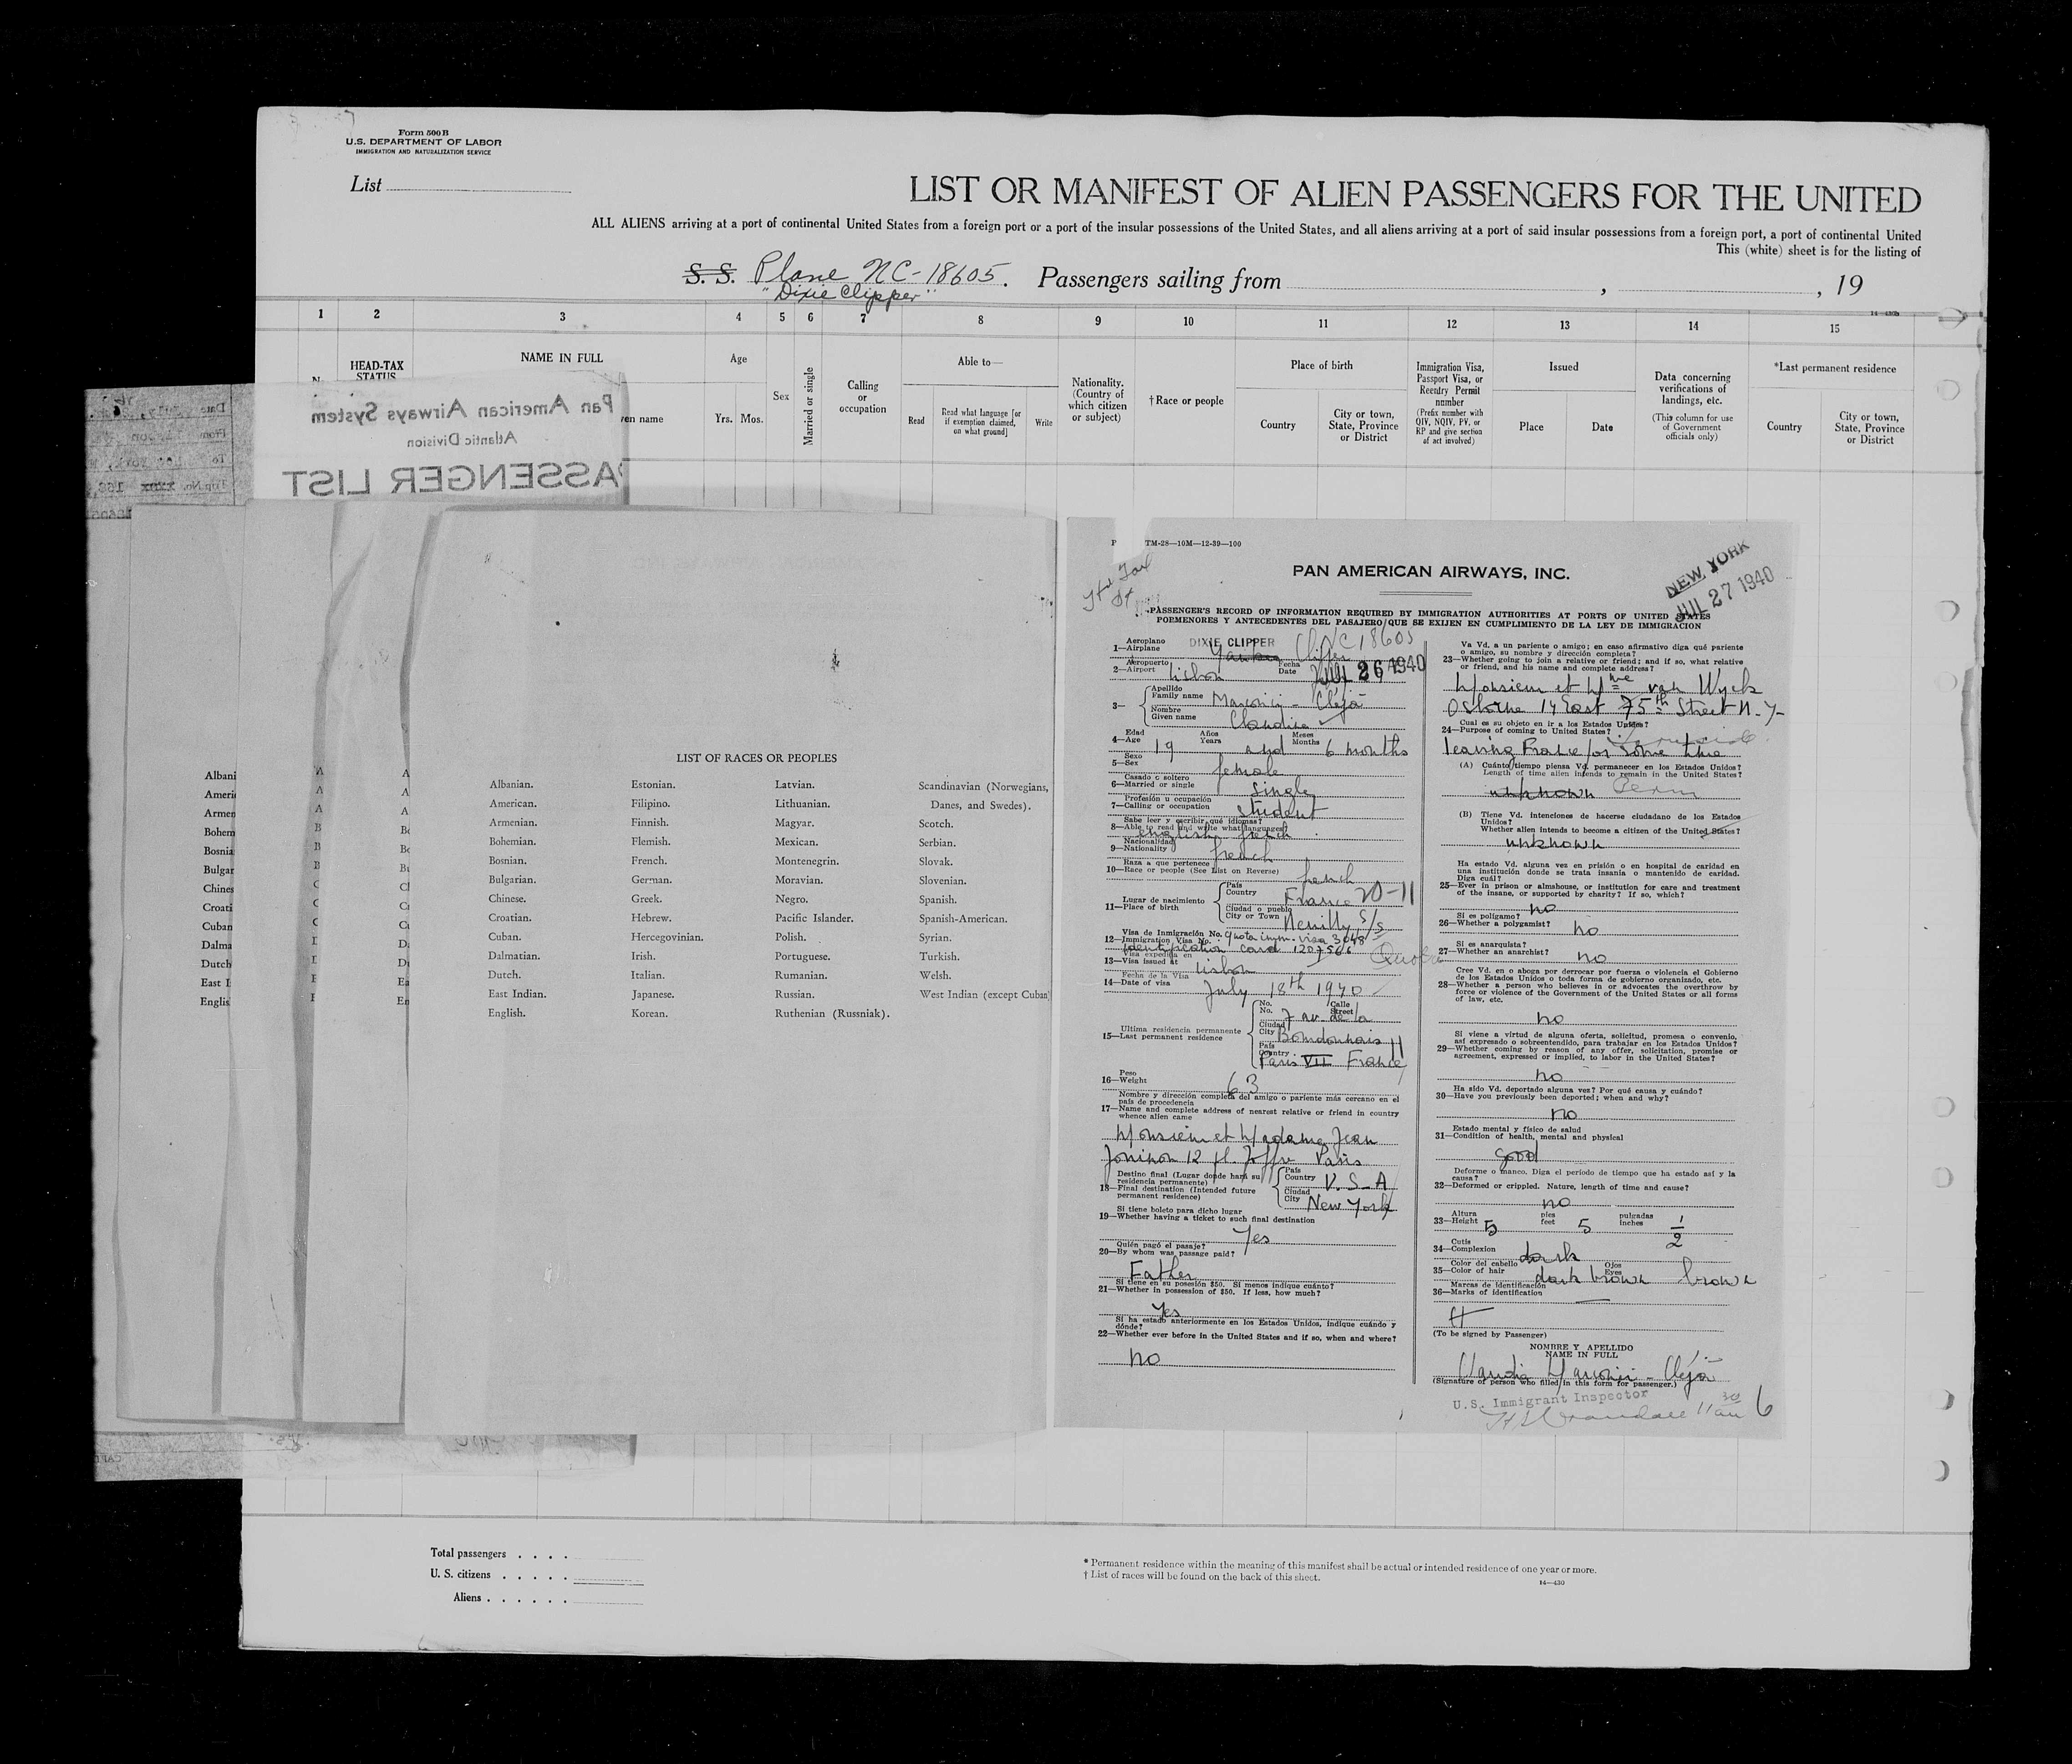 Form 500 B
U.S. DEPARTMENT OF LABOR
IMMIGRATION AND NATURALIZATION SERVICE
List
LIST OR MANIFEST OF ALIEN PASSENGERS FOR THE UNITED
ALL ALIENS arriving at a port of continental United States from a foreign port or a port of the insular possessions of the United States, and all aliens arriving at a port of said insular possessions from a foreign port, a port of continental United
This (white) sheet is for the listing of
S. S. Plane NC-18605. Passengers sailing from , , 19
"Dixie Clipper"
1 2 3 4 5 6 7 8 9 10 11 12 13 14 15
HEAD-TAX
STATUS
NAME IN FULL
ven name
Age
Yrs. Mos.
Sex
Married or single
Calling
or
occupation
Able to—
Read
Read what language [or
if exemption claimed,
on what ground]
Write
Nationality.
(Country of
which citizen
or subject)
†Race or people
Place of birth
Country
City or town,
State, Province
or District
Immigration Visa,
Passport Visa, or
Reentry Permit
number
(Prefix number with
QIV, NQIV, PV, or
RP and give section
of act involved)
Issued
Place
Date
Data concerning
verifications of
landings, etc.
(This column for use
of Government
officials only)
*Last permanent residence
Country
City or town,
State, Province
or District
Pan American Airways System
Atlantic Division
PASSENGER LIST
LIST OF RACES OR PEOPLES
Albanian. Estonian. Latvian. Scandinavian (Norwegians,
American. Filipino. Lithuanian. Danes, and Swedes).
Armenian. Finnish. Magyar. Scotch.
Bohemian. Flemish. Mexican. Serbian.
Bosnian. French. Montenegrin. Slovak.
Bulgarian. German. Moravian. Slovenian.
Chinese. Greek. Negro. Spanish.
Croatian. Hebrew. Pacific Islander. Spanish-American.
Cuban. Hercegovinian. Polish. Syrian.
Dalmatian. Irish. Portuguese. Turkish.
Dutch. Italian. Rumanian. Welsh.
East Indian. Japanese. Russian. West Indian (except Cuban)
English. Korean. Ruthenian (Russniak).
TM-28—10M—12-39—100
PAN AMERICAN AIRWAYS, INC.
NEW YORK
JUL 27 1940
PASSENGER'S RECORD OF INFORMATION REQUIRED BY IMMIGRATION AUTHORITIES AT PORTS OF UNITED STATES
PORMENORES Y ANTECEDENTES DEL PASAJERO QUE SE EXIJEN EN CUMPLIMIENTO DE LA LEY DE IMMIGRACION
Aeroplano
1—Airplane DIXIE CLIPPER Clipper NC 18605
Aeropuerto
2—Airport Lisbon
Fecha
Date JUL 26 1940
3—
Apellido
Family name
Nombre
Given name
Edad
4—Age 19 Años Years and Meses Months 6 months
Sexo
5—Sex female
Casado o soltero
6—Married or single single
Profesión u ocupación
7—Calling or occupation student
Sabe leer y escribir qué idiomas?
8—Able to read and write what languages?
english french
Nacionalidad
9—Nationality french
Raza a que pertenece
10—Race or people (See List on Reverse) french
Lugar de nacimiento
11—Place of birth
País
Country France 20-11
Ciudad o pueblo
City or Town Neuilly s/s
Visa de Inmigración No.
12—Immigration Visa No. quota imm. visa 3048
identification card 1207566 Quota
Visa expedida en
13—Visa issued at Lisbon
Fecha de la Visa
14—Date of visa July 18th 1940
Ultima residencia permanente
15—Last permanent residence
No. Calle
No. Street 7 av. de la
Ciudad
City Bourdonnais
País
Country Paris VII France
Peso
16—Weight 63
Nombre y dirección completa del amigo o pariente más cercano en el
país de procedencia
17—Name and complete address of nearest relative or friend in country
whence alien came
Monsieur et Madame Jean
12 pl. Joffre Paris
Destino final (Lugar donde hará su
residencia permanente)
18—Final destination (Intended future
permanent residence)
País
Country U.S.A
Ciudad
City New York
Si tiene boleto para dicho lugar
19—Whether having a ticket to such final destination
Yes
Quién pagó el pasaje?
20—By whom was passage paid?
Father
Si tiene en su posesión $50. Si menos indique cuánto?
21—Whether in possession of $50. If less, how much?
Yes
Si ha estado anteriormente en los Estados Unidos, indique cuándo y
dónde?
22—Whether ever before in the United States and if so, when and where?
no
Va Vd. a un pariente o amigo; en caso afirmativo diga qué pariente
o amigo, su nombre y dirección completa?
23—Whether going to join a relative or friend; and if so, what relative
or friend, and his name and complete address?
Monsieur et Mme van Wyck
Osborne 14 East 75th Street N.Y-
Cual es su objeto en ir a los Estados Unidos?
24—Purpose of coming to United States?
leaving France for some time
(A) Cuánto tiempo piensa Vd. permanecer en los Estados Unidos?
Length of time alien intends to remain in the United States?
unknown Perm
(B) Tiene Vd. intenciones de hacerse ciudadano de los Estados
Unidos?
Whether alien intends to become a citizen of the United States?
unknown
Ha estado Vd. alguna vez en prisión o en hospital de caridad en
una institución donde se trata insania o mantenido de caridad.
Diga cuál?
25—Ever in prison or almshouse, or institution for care and treatment
of the insane, or supported by charity? If so, which?
no
Si es polígamo?
26—Whether a polygamist? no
Si es anarquista?
27—Whether an anarchist? no
Cree Vd. en o aboga por derrocar por fuerza o violencia el Gobierno
de los Estados Unidos o toda forma de gobierno organizado, etc.
28—Whether a person who believes in or advocates the overthrow by
force or violence of the Government of the United States or all forms
of law, etc.
no
Si viene a virtud de alguna oferta, solicitud, promesa o convenio,
así expresado o sobreentendido, para trabajar en los Estados Unidos?
29—Whether coming by reason of any offer, solicitation, promise or
agreement, expressed or implied, to labor in the United States?
no
Ha sido Vd. deportado alguna vez? Por qué causa y cuándo?
30—Have you previously been deported; when and why?
no
Estado mental y físico de salud
31—Condition of health, mental and physical
good
Deforme o manco. Diga el período de tiempo que ha estado así y la
causa?
32—Deformed or crippled. Nature, length of time and cause?
no
Altura
33—Height 5 pies feet 5 pulgadas inches 1/2
Cutis
34—Complexion dark
Color del cabello
35—Color of hair dark brown Ojos Eyes brown
Marcas de identificación
36—Marks of identification
(To be signed by Passenger)
NOMBRE Y APELLIDO
NAME IN FULL
(Signature of person who filled in this form for passenger.)
U.S. Immigrant Inspector
6
Total passengers . . . .
U. S. citizens . . . . .
Aliens . . . . . .
* Permanent residence within the meaning of this manifest shall be actual or intended residence of one year or more.
† List of races will be found on the back of this sheet.
14—430